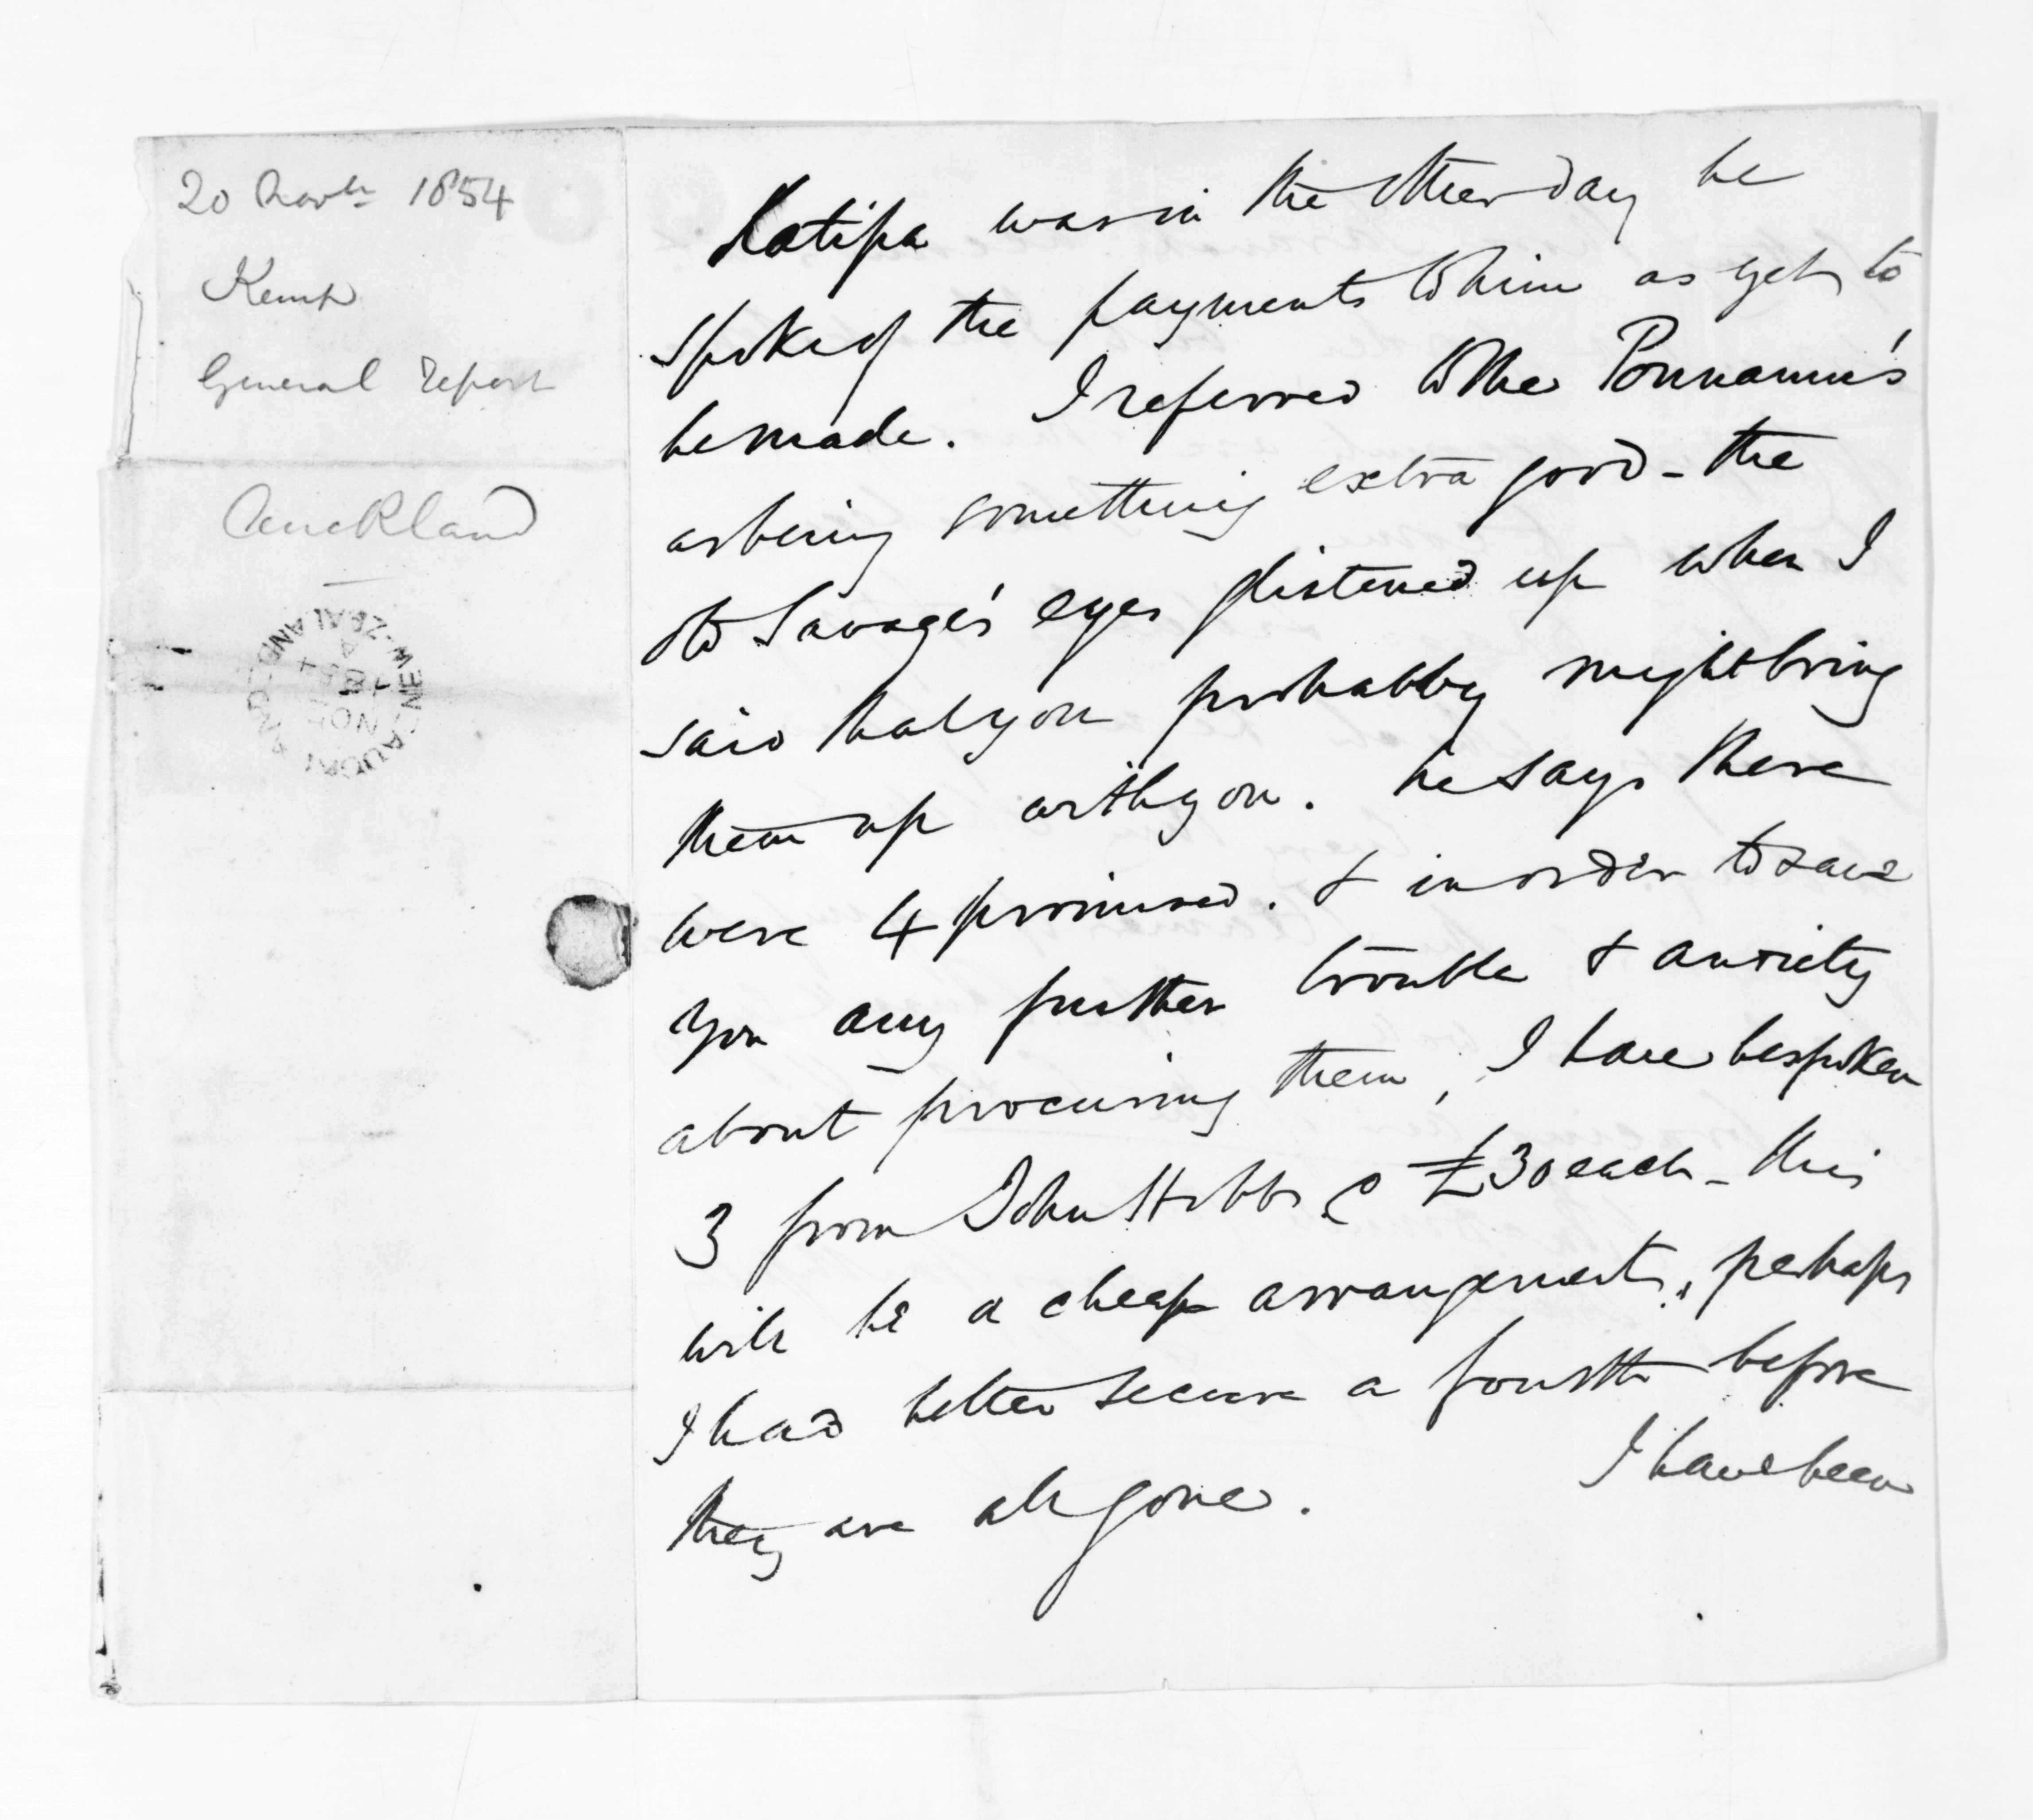 20 Novbr 1854
Kemp
General Report
Auckland
AUCKLAND NEW-ZEALAND
NO 18
1854
Katipa was in the other day he
spoke of the payments to him as yet to
be made. I referred to the Pounamu's
as being something extra good - the
old Savage's eyes glistened up when I
said that you probably might bring
them up with you. he says there
were 4 promised. & in order to save
you any further trouble & anxiety
about procuring them, I have bespoken
3 from John Hobbs @ £30 each - this
will be a cheap arrangement, perhaps
I had better secure a fourth before
they are all gone. I have been